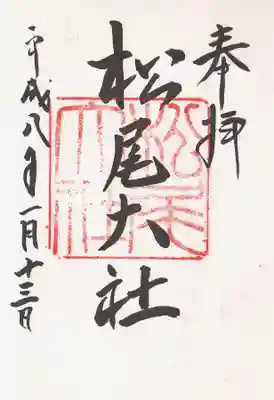 奉拝
松尾大社
松尾大社
平成八年一月十三日